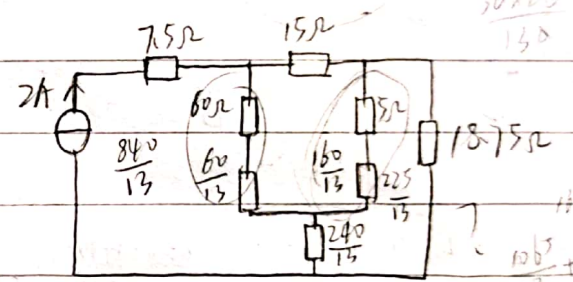 7.5Ω
15Ω
2A
60Ω
5Ω
18.75Ω
840/13
60/13
160/13
225/13
240/13